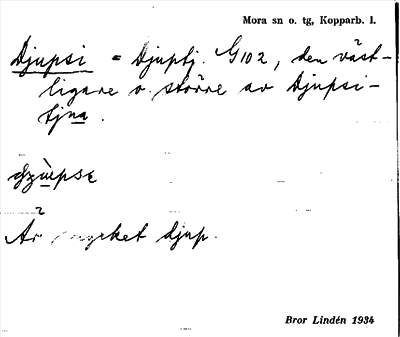 Mora sn o. tg, Kopparb. l.
Djupsi = Djuptj. G102, den väst-
ligare o. större av Djupsi-
tjna.
Är mycket djup.
Bror Lindén 1934